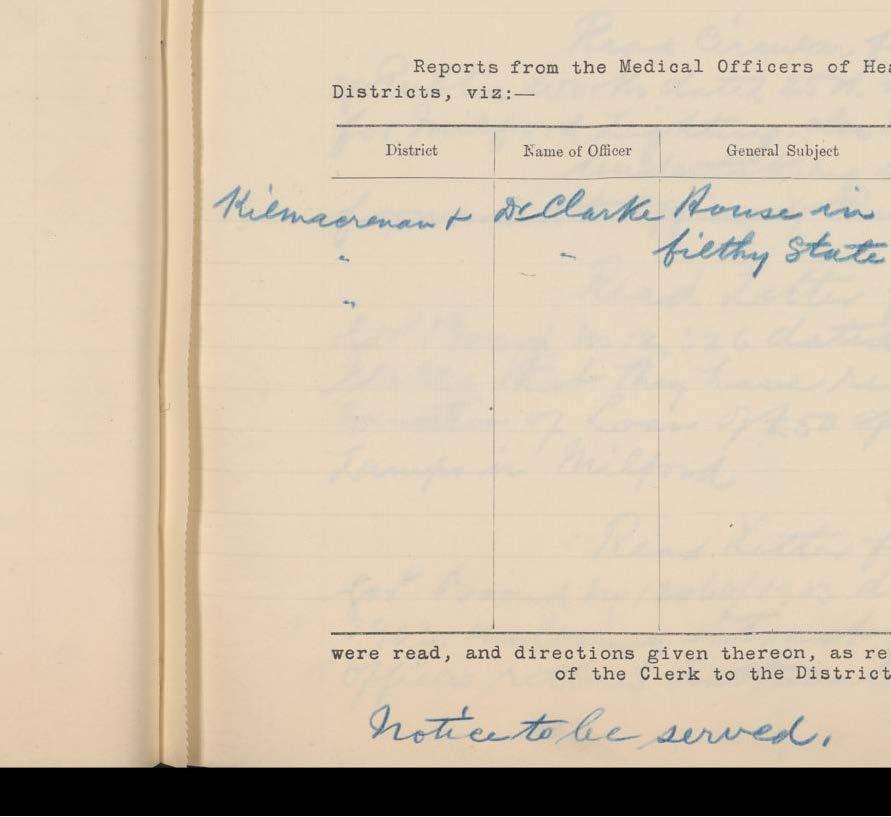 Reports from the Medical Officers of Hea
Districts, viz:—
District Name of Officer General Subject
Kilmacrenan + Dr Clarke House in
" " filthy State
"
were read, and directions given thereon, as re
of the Clerk to the District
Notice to be served.